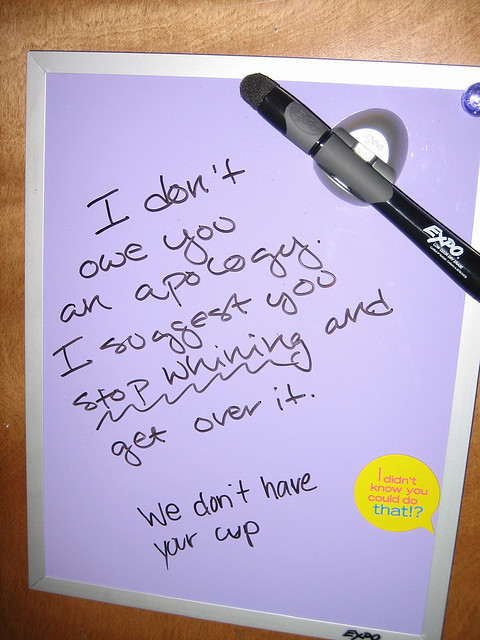 I don't
owe you
an apology.
I suggest you
stop whining and
get over it.
We don't have
your cup
EXPO
I didn't
know you
could do
that!?
EXPO